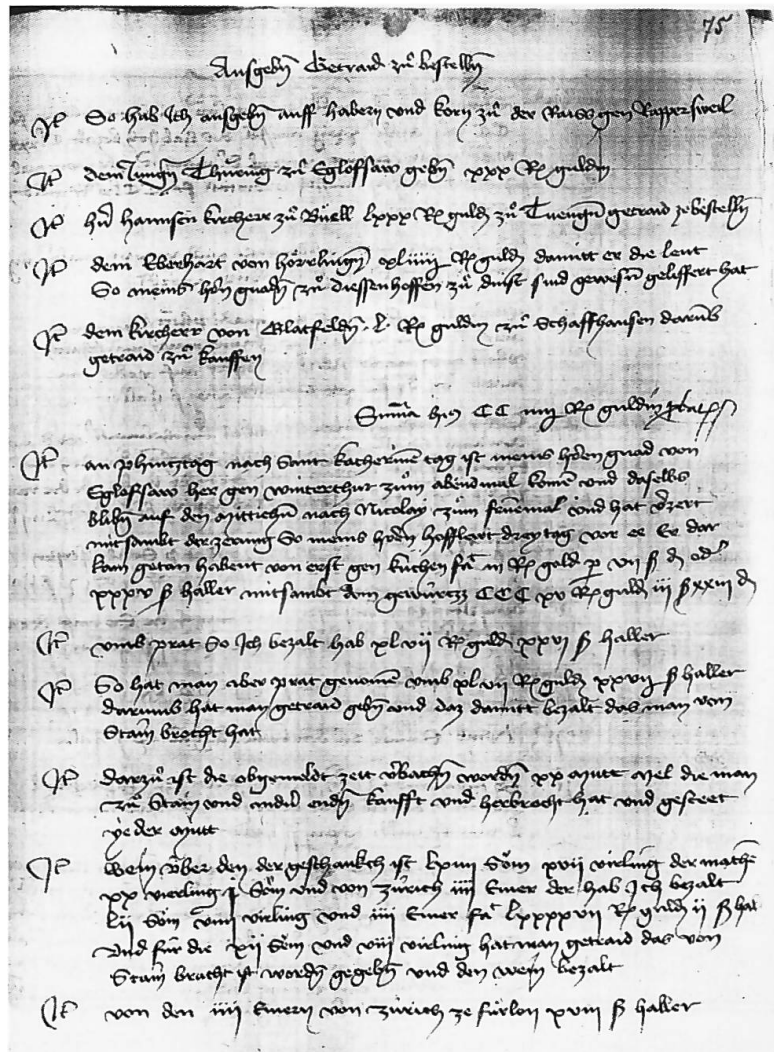 75
Ausgebn̄ Getraid zů bestelln̄
Jt̄ So hab Ich ausgebn̄ auff habern vnd korn zů der Raiss gen Rappersweil
Jt̄ dem Jungn̄ zů Egloffsaw gebn̄ xxx R guldn̄
Jt̄ hannsen kircherr zů Būell lxxx R guldn̄ zů getraid zebestelln̄
Jt̄ dem Eberhart von xliiii R guldn̄ damitt er die leut
So meins hn̄ gnadn̄ zů diessenhoffen zů dinst sind gewesn̄ geliffert hat
Jt̄ dem kircherr von Glatfeldn̄ · l · R guldn̄ zů Schaffhausen darūb
getraid zů kauffen
Sum̄a CC iiii R guldn̄
Jt̄ an phintztag nach Sant katherinē tag ist meins hren gnad von
Egloffsaw her gen winterthur zům abendmal komē vnd daselbs
blibn̄ auf den mittichn̄ nach Nicolay zům vnd hat v̄zert
mitsambt der zerung So meins hrn̄ hoffleut drey tag vor ee Er dar
kam getan habent von erst gen küchen iii R gold p vii ß d od
xxxv ß haller mitsambt dem gewürtz CCC xv R guldn̄ iii ß xxiii d
Jt̄ vmb prat So Ich bezalt hab xlvii R guldn̄ xxvi ß haller
Jt̄ So hat man aber prat genomē vmb xlvii R guldn̄ xxvii ß haller
darumb hat man getraid gebn̄ vnd daz damitt bezalt das man von
Stain brocht hat
Jt̄ darzů ist die obgemeldt zeit v̄bachn̄ wordn̄ xx mutt mel die man
zů Stain vnd endn̄ kaufft vnd herbrocht hat vnd gesteet
yeder mutt
Jt̄ wein v̈ber den der geschankch ist lxiiii Söm xvii virling der
xx vierling j Söm vnd von zürich iiii Emer der hab Ich bezalt
lii Söm viiii virling vnd iiii Emer lxxxxvii R guldn̄ ii ß hal
vnd für die xii Söm vnd viii virling hat man getraid das von
Stain bracht ist wordn̄ gegebn̄ vnd den wein bezalt
Jt̄ von den iiii Emern von zürich ze fürlon xviii ß haller